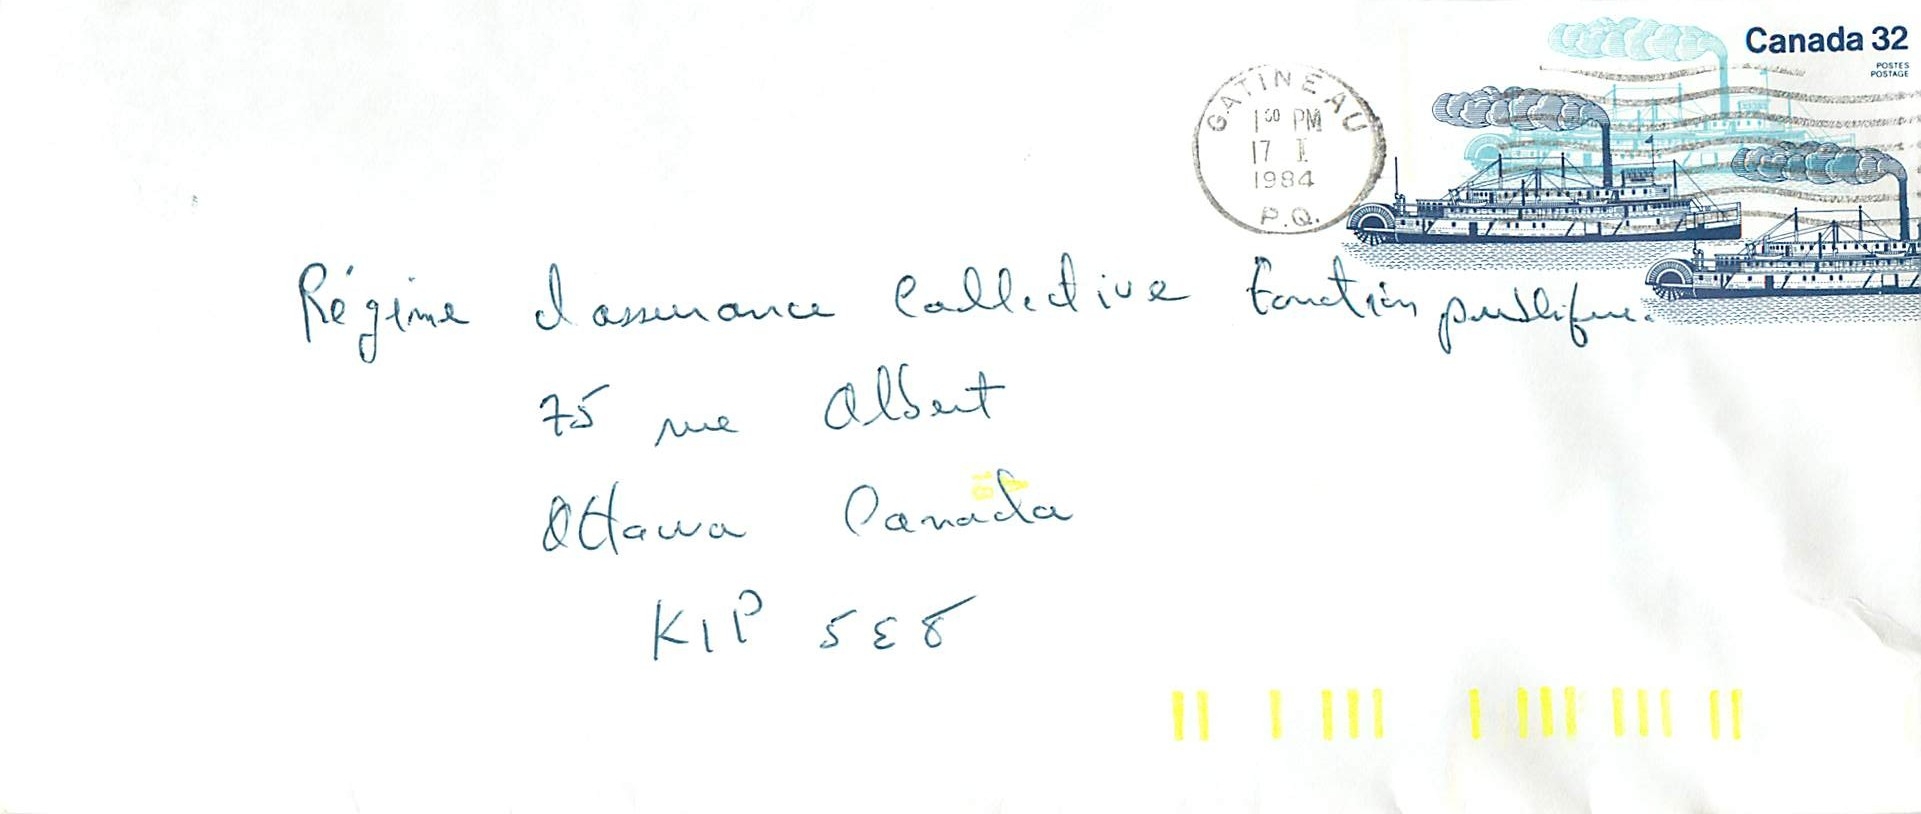 Canada 32
POSTES
POSTAGE
GATINEAU
1 00 PM
17 I
1984
P.Q.
Régime d'assurance Collective fonction publique.
75 rue Albert
Ottawa Canada
K1P 5E8